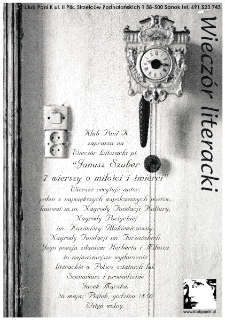 Klub Pani K ul. II Płk. Strzelców Podhalańskich 1 38-500 Sanok tel. 691 523 743
Wieczór literacki
Klub Pani K
zaprasza na
Wieczór Literacki pt.
"Janusz Szuber
7 wierszy o miłości i śmierci"
Wiersze recytuje autor,
jeden z największych współczesnych poetów,
laureat m.in. Nagrody Fundacji Kultury,
Nagrody Poetyckiej
im. Kazimiery Iłłakowiczówny,
Nagrody Fundacji im. Turzańskich.
Jego poezja zdaniem Herberta i Miłosza
to najważniejsze wydarzenie
literackie w Polsce ostatnich lat.
Scenariusz i prowadzenie
Jacek Mączka.
maja, Piątek, godzina
Wstęp wolny.